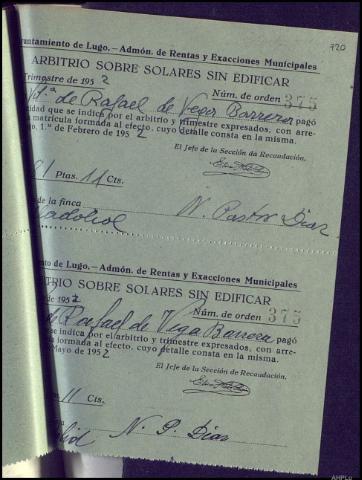 720
untamiento de Lugo.—Admón. de Rentas y Exacciones Municipales
ARBITRIO SOBRE SOLARES SIN EDIFICAR
Trimestre de 1952
Núm. de orden 375
Vd.ª de Rafael de Vega Barrera pagó
tidad que se indica por el arbitrio y trimestre expresados, con arre-
a matrícula formada al efecto, cuyo detalle consta en la misma.
o, 1.º de Febrero de 1952
El Jefe de la Sección de Recaudación.
Ptas. 14 Cts.
de la finca
N. Pastor Díaz
nto de Lugo.—Admón. de Rentas y Exacciones Municipales
TRIO SOBRE SOLARES SIN EDIFICAR
de 1952
Núm. de orden 375
de Rafael de Vega Barrera pagó
e indica por el arbitrio y trimestre expresados, con arre-
la formada al efecto, cuyo detalle consta en la misma.
Mayo de 1952
El Jefe de la Sección de Recaudación.
11 Cts.
N. P. Díaz
AHPLu